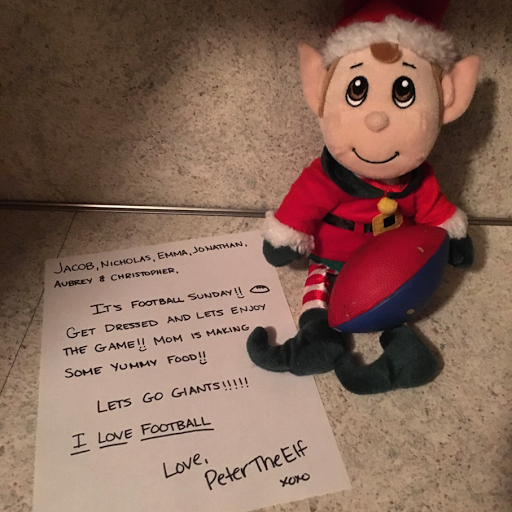 JACOB, NICHOLAS, EMMA, JONATHAN,
AUBREY & CHRISTOPHER,
IT'S FOOTBALL SUNDAY!!
GET DRESSED AND LETS ENJOY
THE GAME!! MOM IS MAKING
SOME YUMMY FOOD!!
LETS GO GIANTS!!!!!
I LOVE FOOTBALL
LOVE,
PETERTHEELF
XOXO